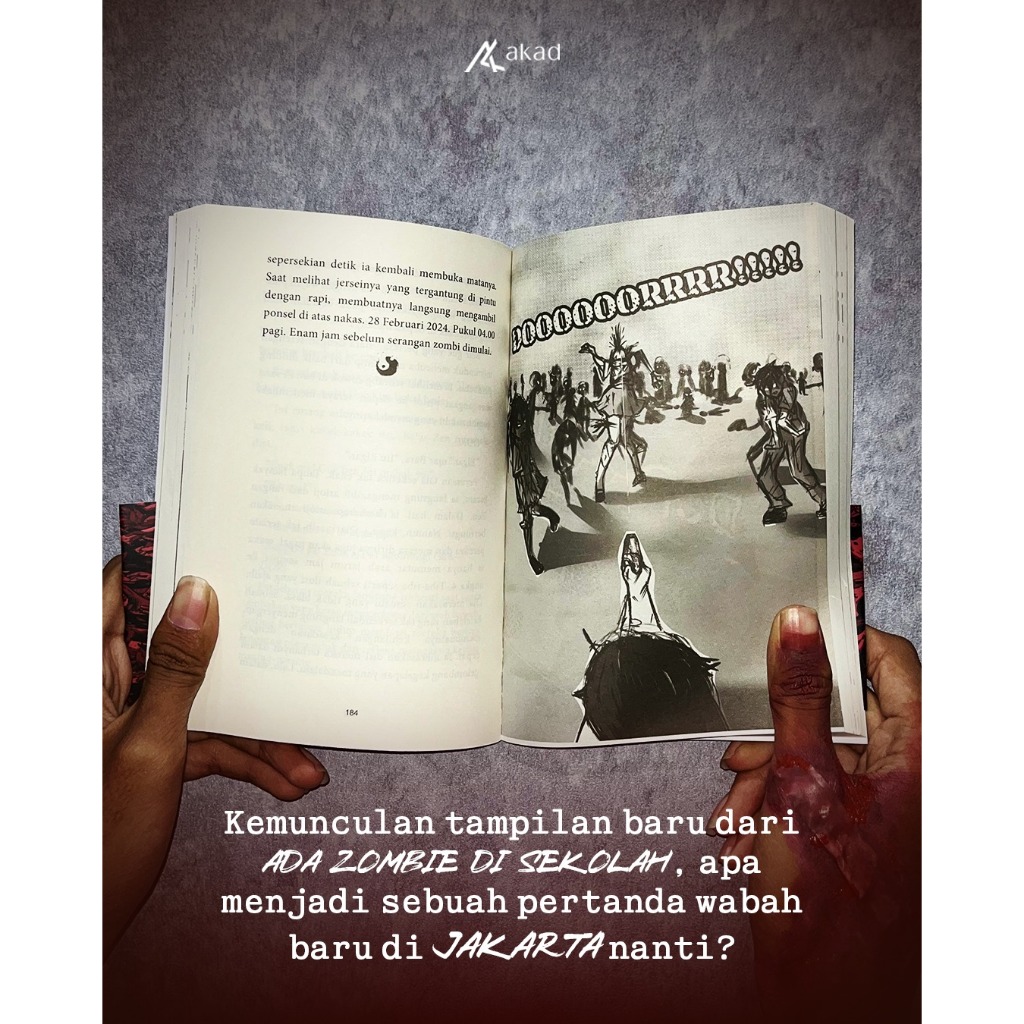 akad
sepersekian detik ia kembali membuka matanya.
Saat melihat jerseinya yang tergantung di pintu
dengan rapi, membuatnya langsung mengambil
ponsel di atas nakas. 28 Februari 2024. Pukul 04.00
pagi. Enam jam sebelum serangan zombi dimulai.
DOOOOOORRRR!!!!!
184
Kemunculan tampilan baru dari
ADA ZOMBIE DI SEKOLAH, apa
menjadi sebuah pertanda wabah
baru di JAKARTA nanti?